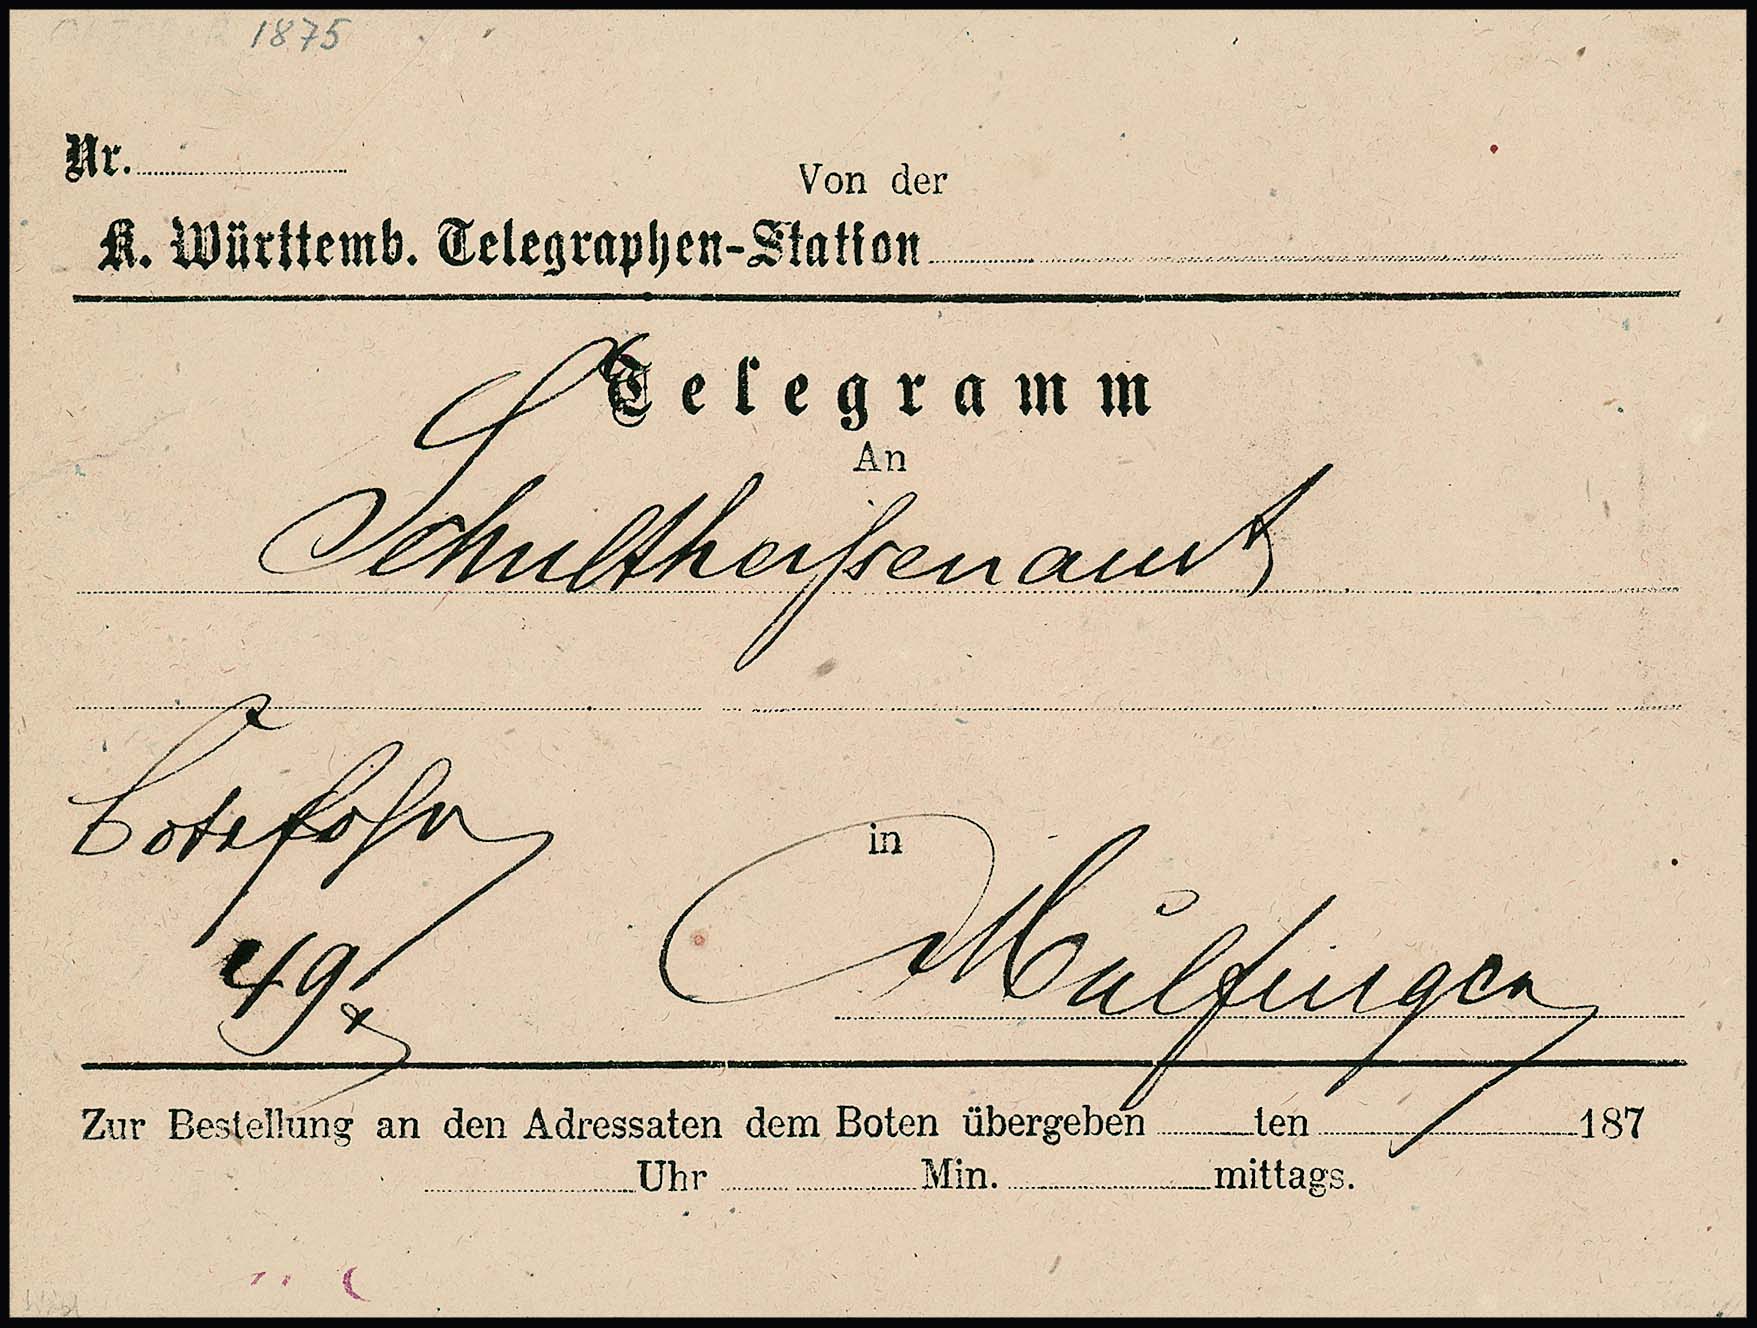 1875
Nr.
Von der
K. Württemb. Telegraphen-Station
Telegramm
An
Schultheißenamt
in
Mulfingen
49 x
Zur Bestellung an den Adressaten dem Boten übergeben ten 187
Uhr Min. mittags.